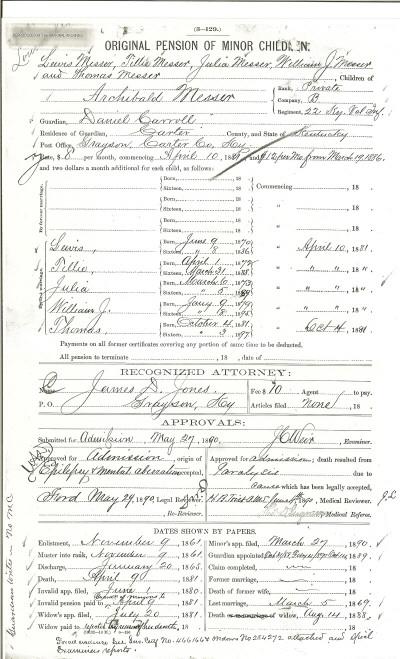 (3—129.)
ORIGINAL PENSION OF MINOR CHILDREN.
Lewis Messer, Tillie Messer, Julia Messer, William J. Messer
and Thomas Messer Children of
Archibald Messer
Rank, Private
Company, B
Regiment, 22 Ky. Vol Inf.
Guardian, Daniel Carroll
Residence of Guardian, Carter County, and State of Kentucky
Post Office, Grayson, Carter Co, Ky
Rate, $8 per month, commencing April 10, 1881, and $12 per Mo. from March 19, 1886.
and two dollars a month additional for each child, as follows:
Born, , 18
Sixteen, , 18
Commencing , 18
Born, , 18
Sixteen, , 18
Born, , 18
Sixteen, , 18
Lewis, Born, June 9, 1870
Sixteen, " 8, 1886
" April 10, 1881
Tillie, Born, April 1, 1872
Sixteen, March 31, 1888
" " " , 18 "
Julia Born, March 6, 1873
Sixteen, " 5, 1889
" " " , 18 "
William J. Born, Jany 9, 1879
Sixteen, " 8, 1895
" " " , 18 "
Thomas, Born, October 4, 1881
Sixteen, " 3, 1897
" Oct 4, 1881
Payments on all former certificates covering any portion of same time to be deducted.
All pension to terminate , 18 , date of
RECOGNIZED ATTORNEY:
Name James D. Jones. Fee $10 Agent to pay.
P. O. Grayson, Ky Articles filed None, 18
APPROVALS:
Submitted for Admission May 27, 1890, J C Weir, Examiner.
Approved for Admission origin of
Epilepsy & Mental aberration accepted,
Approved for admission; death resulted from
Paralysis
cause which has been legally accepted,
Ford May 29, 1890, Legal Reviewer.
Re-Reviewer.
1890, Medical Reviewer.
Medical Referee.
DATES SHOWN BY PAPERS.
Enlistment, November 9, 1861
Muster into rank, November 9, 1861
Discharge, January 20, 1865
Death, April 9, 1881
Invalid app. filed, June 1, 1880
Invalid pension paid to April 9, 1881
Widow's app. filed, July 20, 1881
Minor's app. filed, March 27, 1890
Guardian appointed,
Claim completed, , 18
Former marriage, , 18
Death of former wife, , 18
Last marriage, March 5, 1869
Death widow, Aug 14, 1888
attached and Special
Examiners reports.
Guardian writes — No M.C.